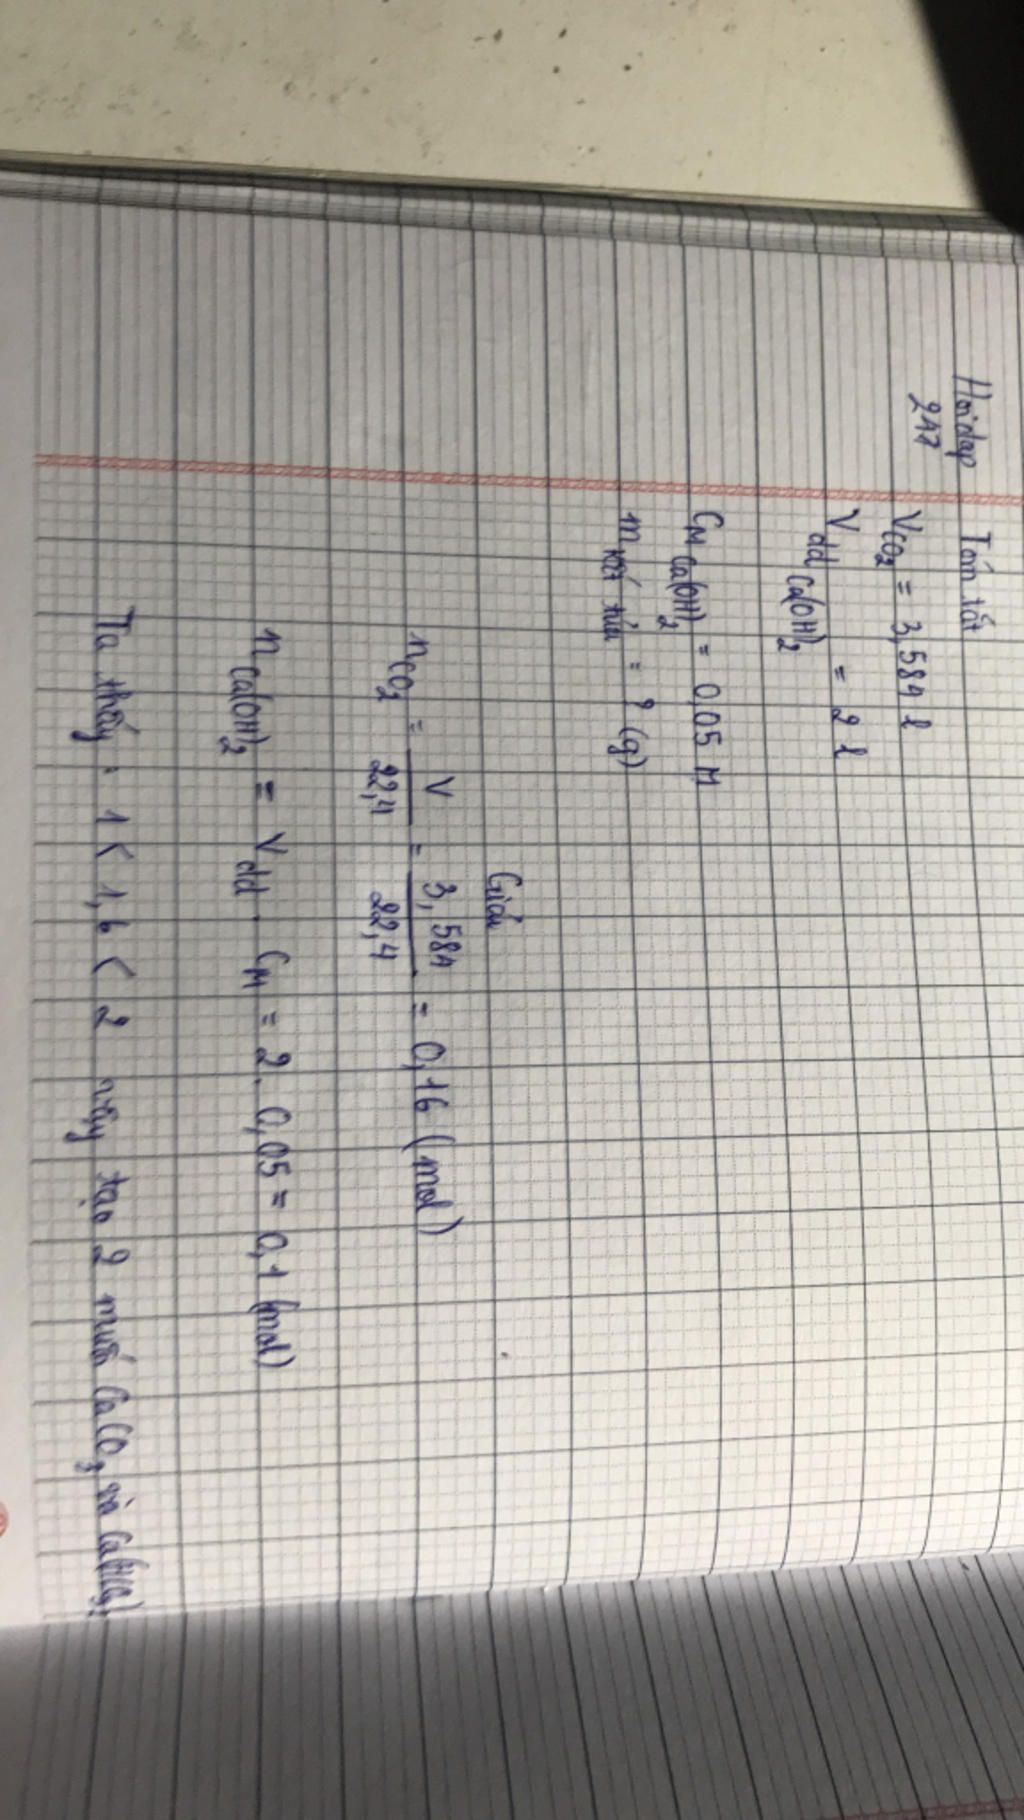 Hoidap
247
Tóm tắt
V CO₂ = 3,584 l
V dd Ca(OH)₂ = 2 l
C M Ca(OH)₂ = 0,05 M
m kết tủa = ? (g)
Giải
n CO₂ = V / 22,4 = 3,584 / 22,4 = 0,16 (mol)
n Ca(OH)₂ = V dd . C M = 2 . 0,05 = 0,1 (mol)
Ta thấy : 1 < 1,6 < 2 vậy tạo 2 muối CaCO₃ và Ca(HCO₃)₂